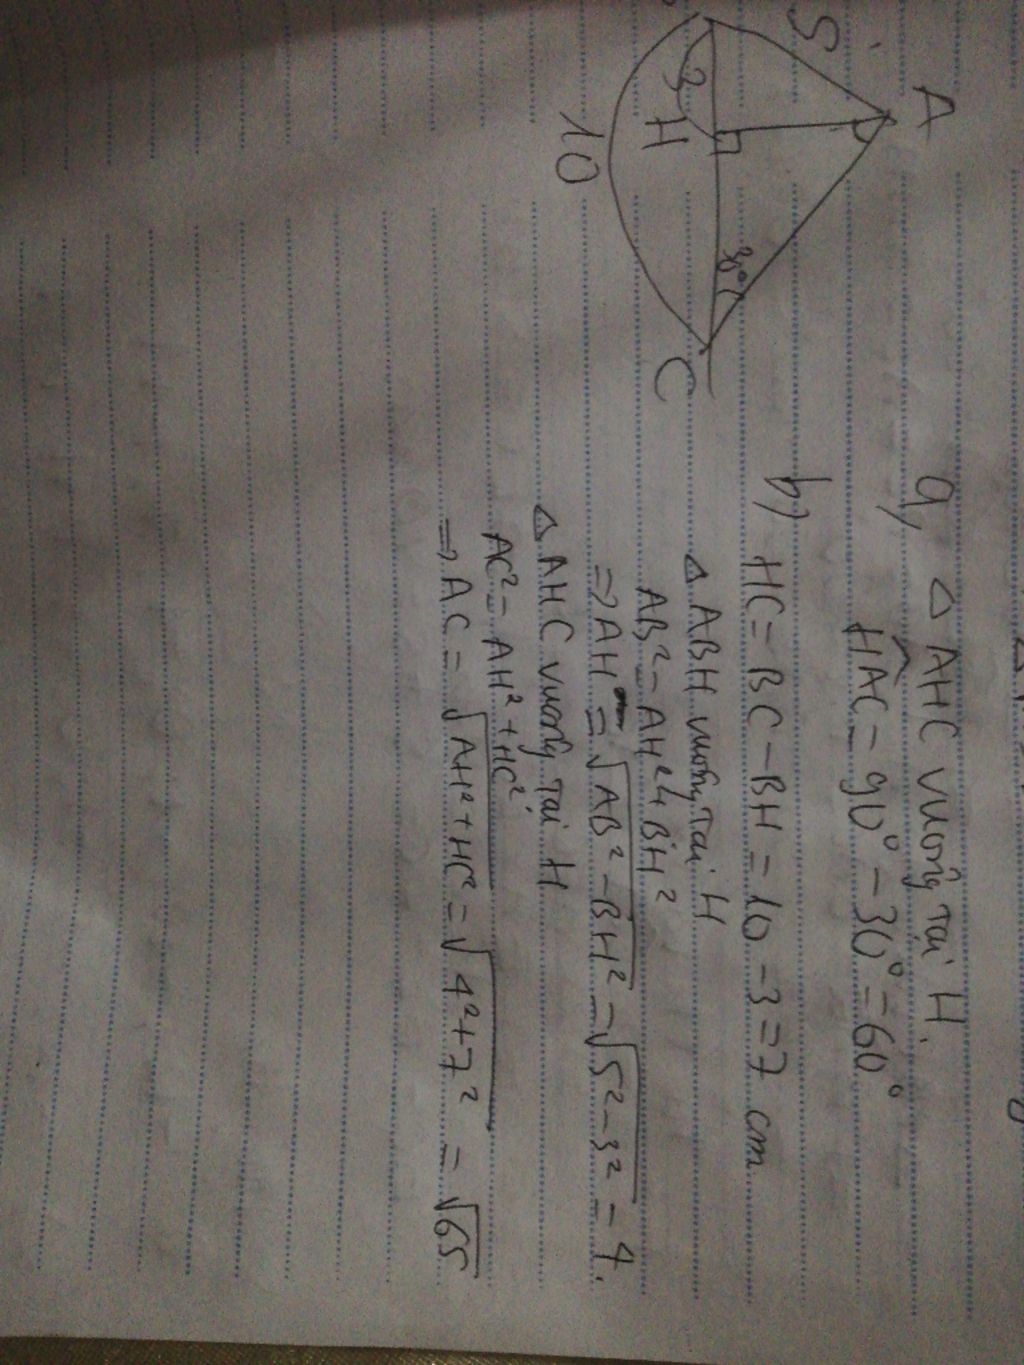 A
5
3
H
30°
C
10
a, △ AHC vuông tại H.
HAC = 90° - 30° = 60°
b) HC = BC - BH = 10 - 3 = 7 cm
△ ABH vuông tại H
AB² = AH² + BH²
=> AH = √AB² - BH² = √5² - 3² = 4.
△ AHC vuông tại H
AC² = AH² + HC²
=> AC = √AH² + HC² = √4² + 7² = √65